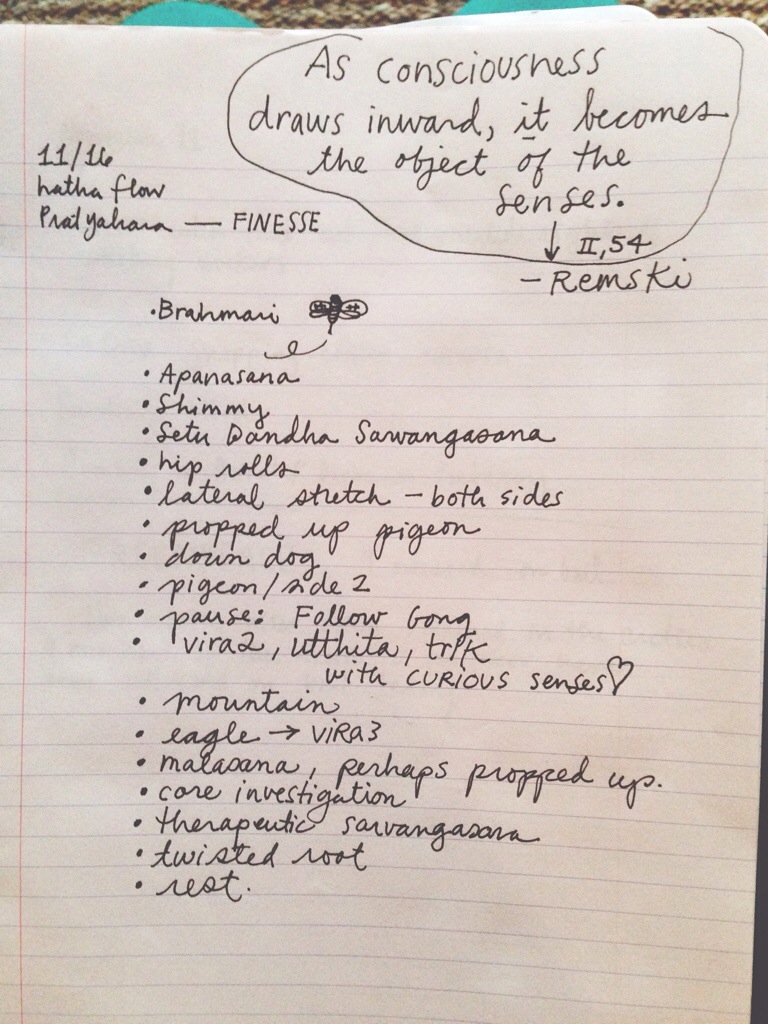 As consciousness
draws inward, it becomes
the object of the
senses.
↓ II, 54
— Remski
11/16
hatha flow
Pratyahara — FINESSE
• Brahmari
• Apanasana
• Shimmy
• Setu Bandha Sarvangasana
• hip rolls
• lateral stretch – both sides
• propped up pigeon
• down dog
• pigeon/side 2
• pause: Follow Gong
• vira2, utthita, trik
with CURIOUS senses♡
• mountain
• eagle → VIRA3
• malasana, perhaps propped up.
• core investigation
• therapeutic sarvangasana
• twisted root
• rest.